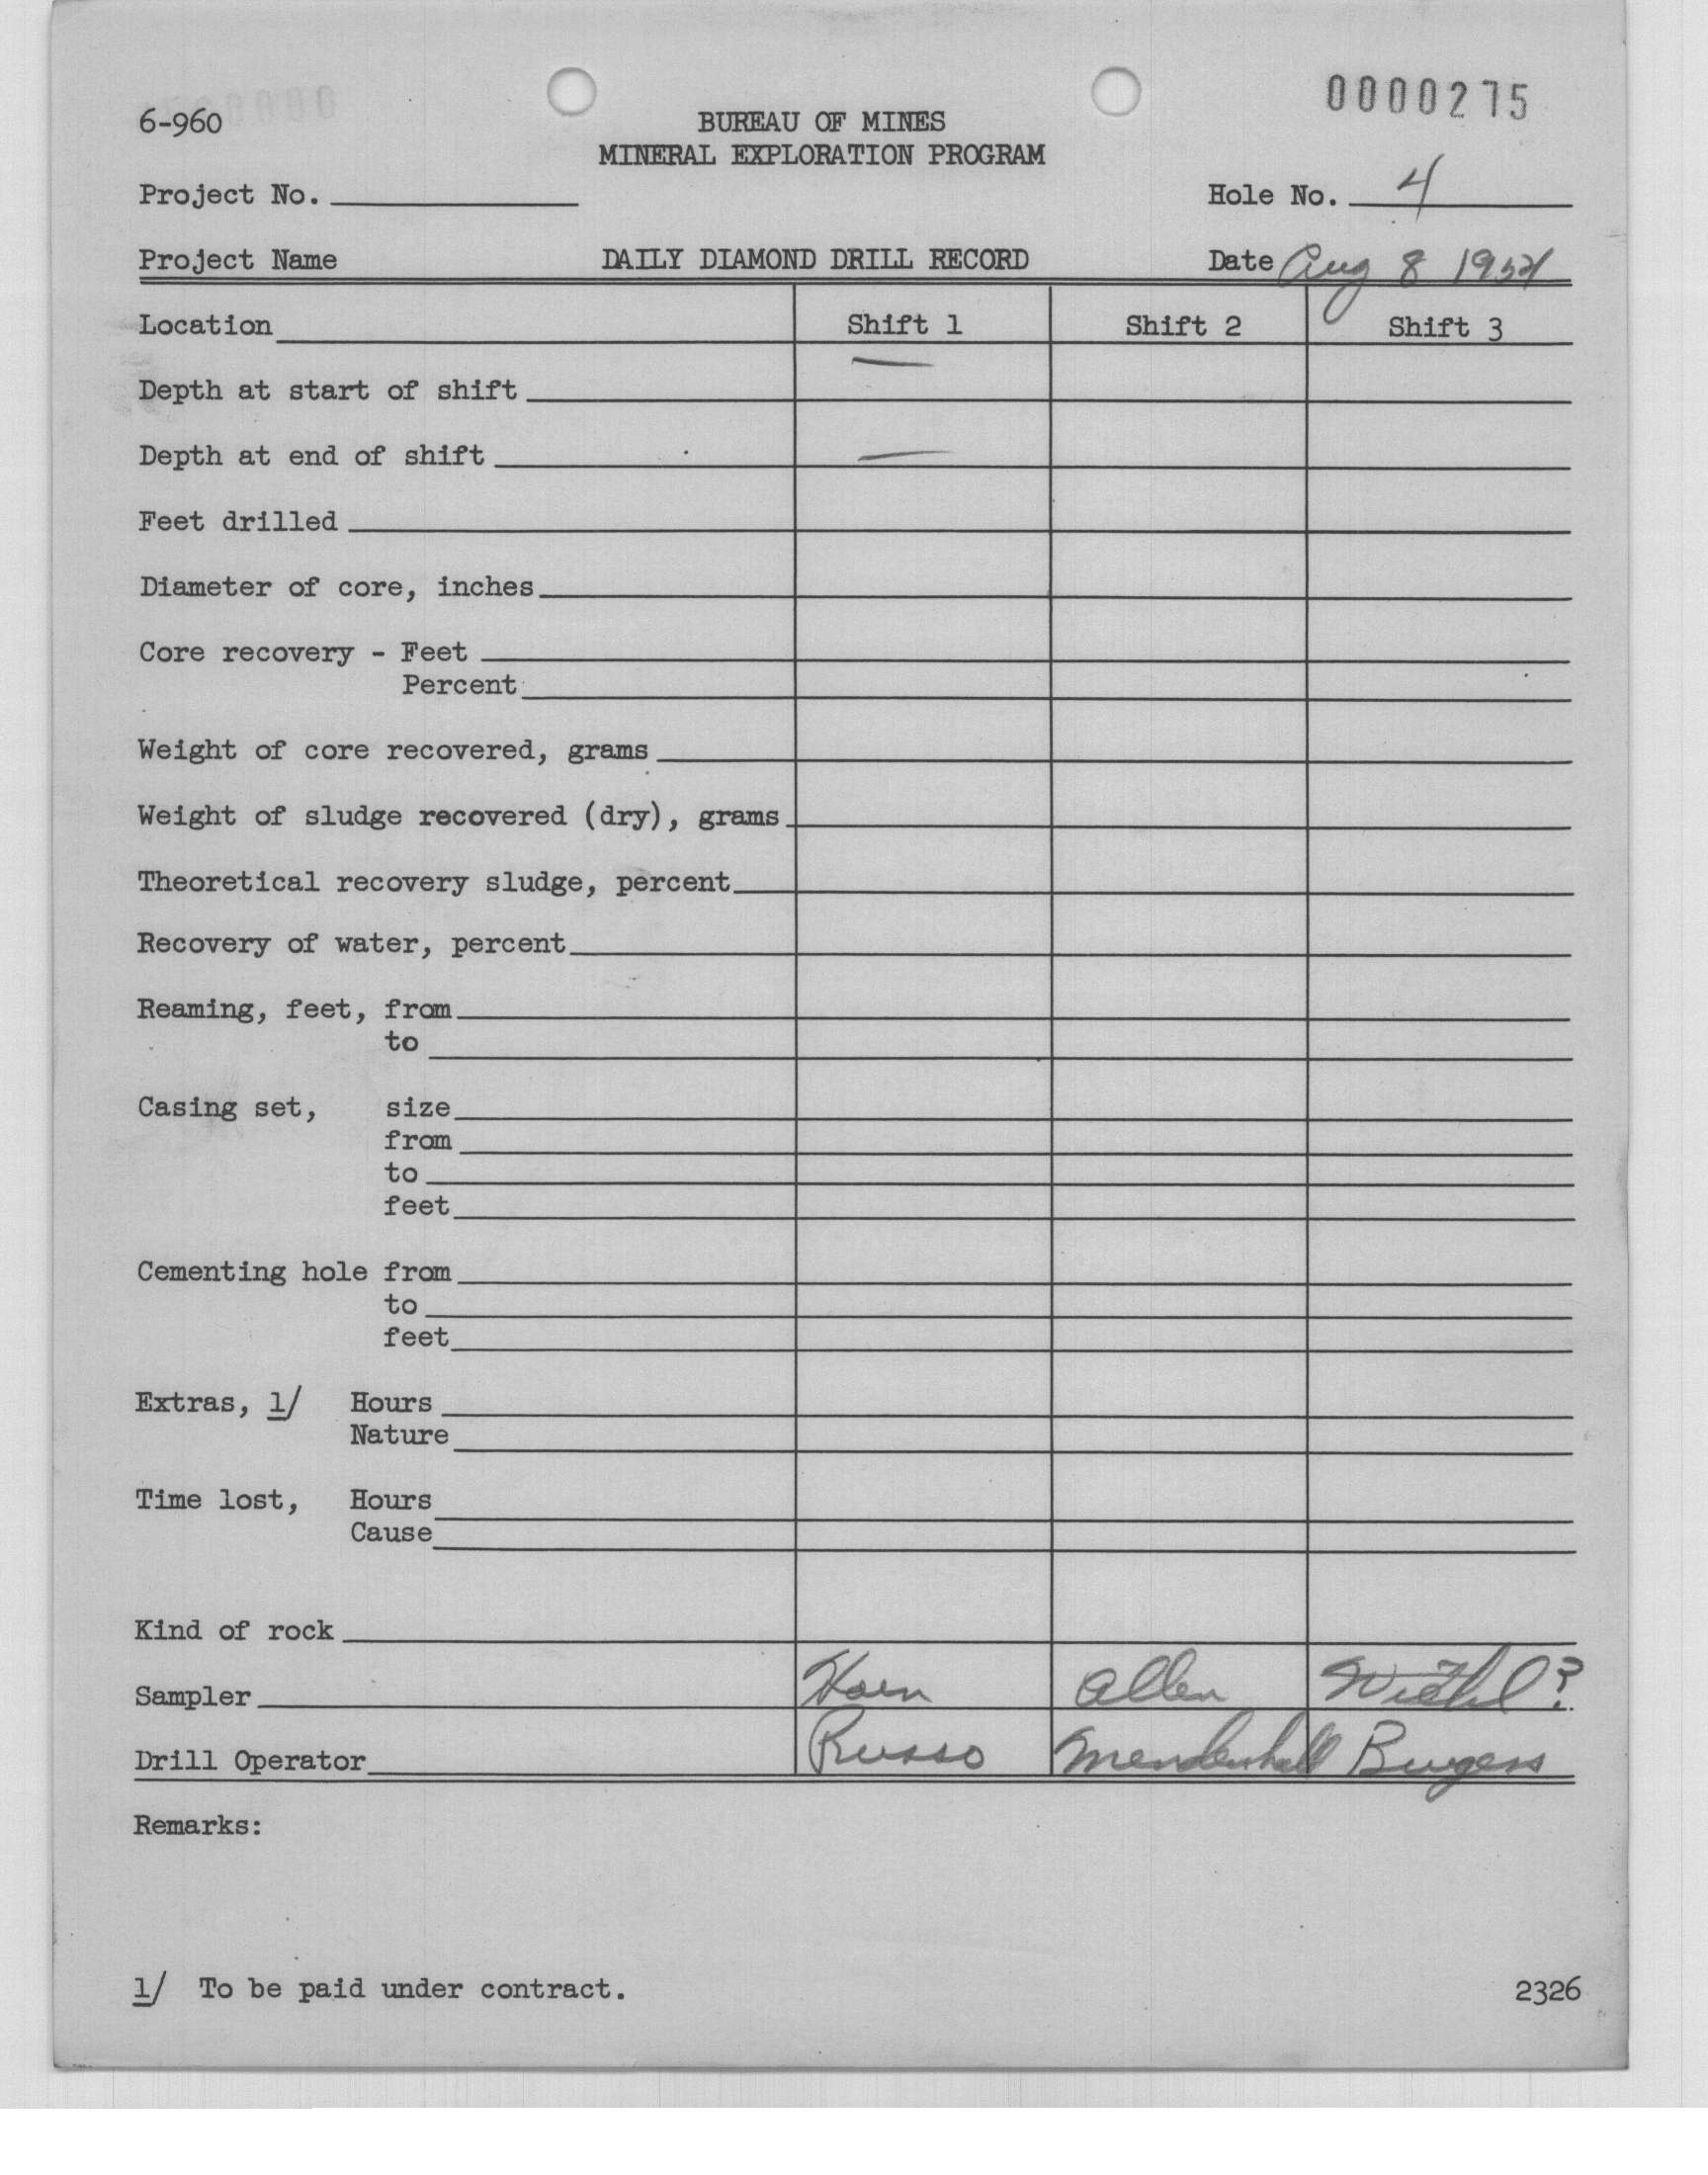 0000275
6-960
BUREAU OF MINES
MINERAL EXPLORATION PROGRAM
Project No. Hole No. 4
Project Name DAILY DIAMOND DRILL RECORD Date Aug 8
Location Shift 1 Shift 2 Shift 3
Depth at start of shift —
Depth at end of shift —
Feet drilled
Diameter of core, inches
Core recovery - Feet
Percent
Weight of core recovered, grams
Weight of sludge recovered (dry), grams
Theoretical recovery sludge, percent
Recovery of water, percent
Reaming, feet, from
to
Casing set, size
from
to
feet
Cementing hole from
to
feet
Extras, 1/ Hours
Nature
Time lost, Hours
Cause
Kind of rock
Sampler Allen
Drill Operator Russo Mendenhall Burgess
Remarks:
1/ To be paid under contract.
2326